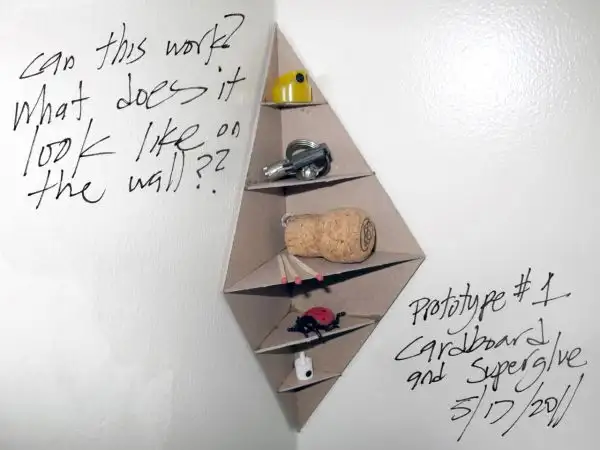 can this work?
What does it
look like on
the wall??
Prototype #1
Cardboard
and Superglue
5/17/2011